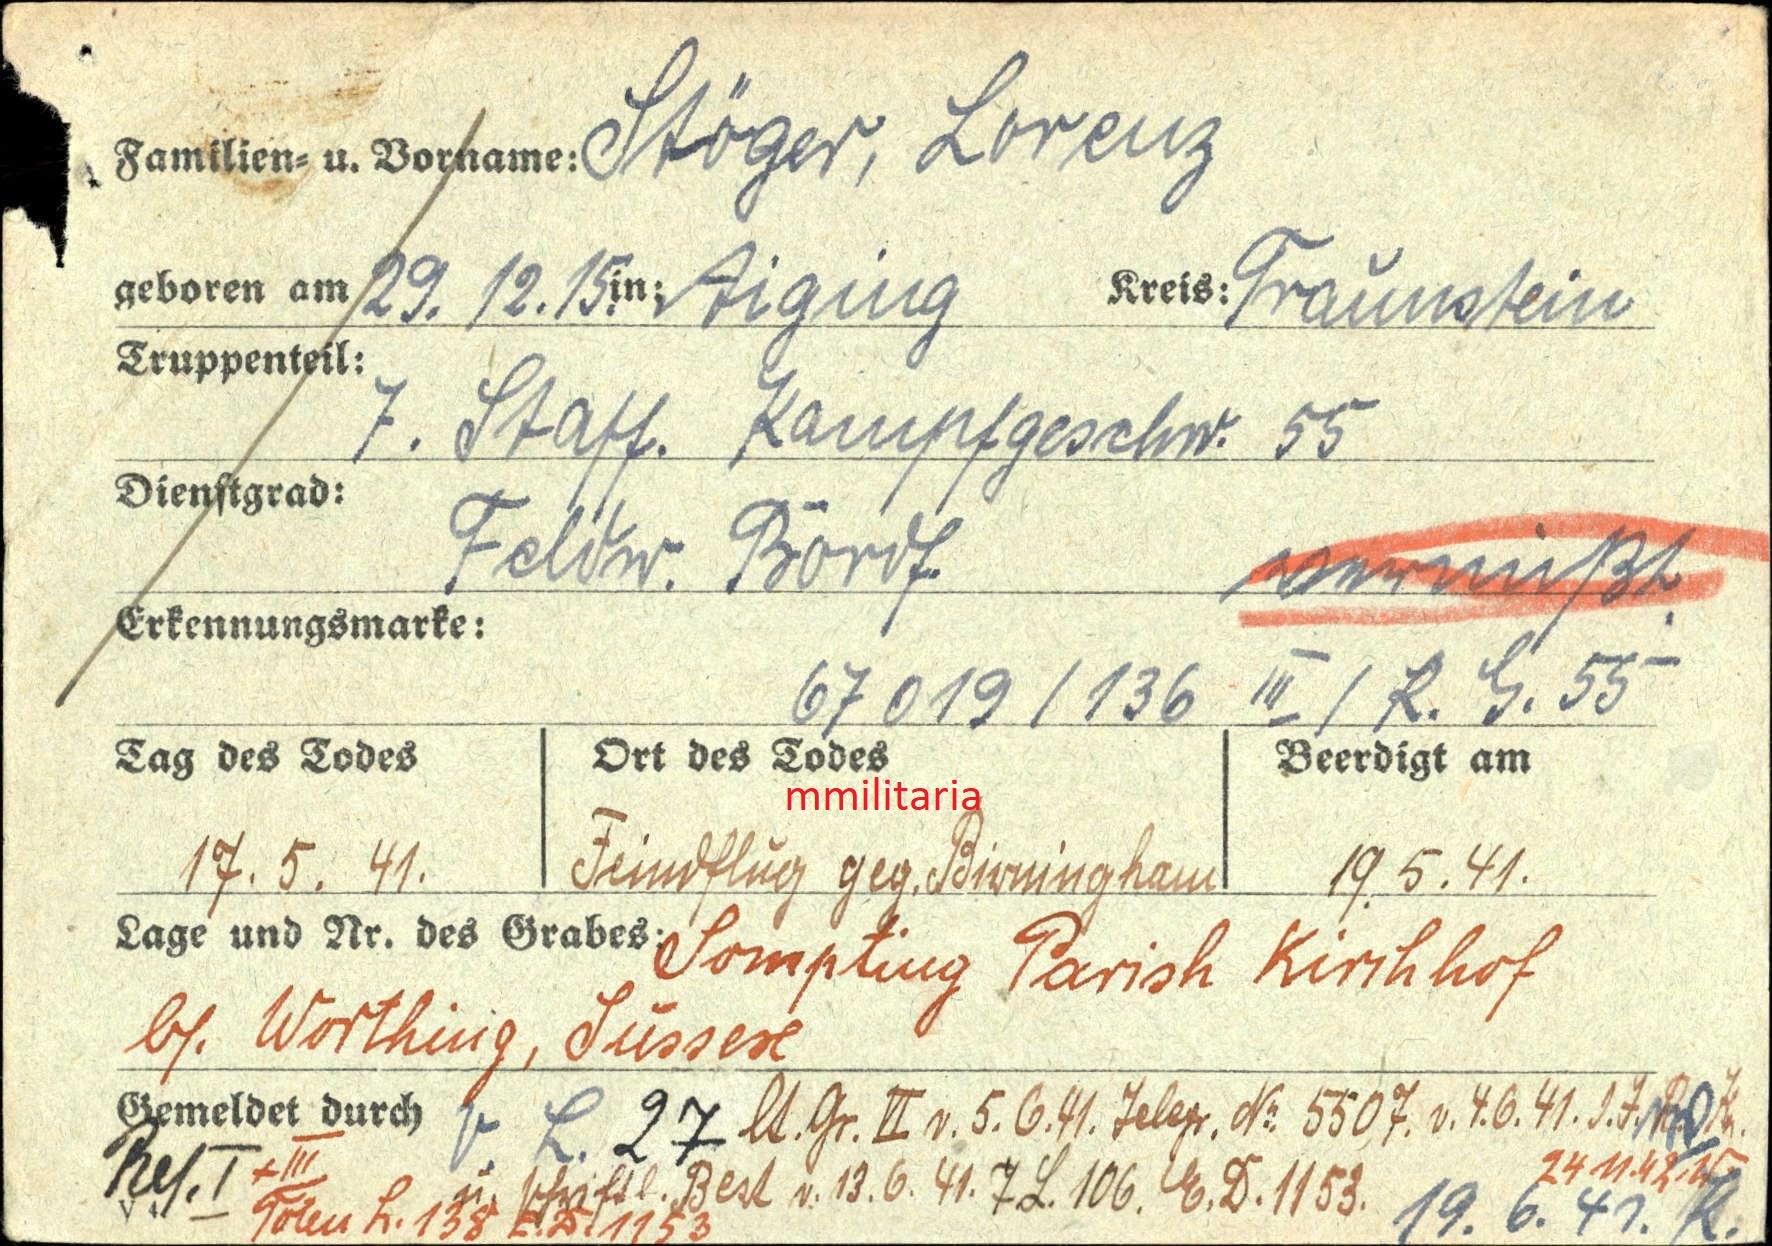 Familien- u. Vorname: Stöger, Lorenz
geboren am 29. 12. 15. in: Aiging Kreis: Traunstein
Truppenteil:
7. Staff. Kampfgeschw. 55
Dienstgrad:
Feldw. Bordf. vermißt.
Erkennungsmarke:
67 019 / 136 III / K. G. 55
Tag des Todes Ort des Todes Beerdigt am
mmilitaria
17. 5. 41. Feindflug geg. Birmingham 19. 5. 41.
Lage und Nr. des Grabes: Sompting Parish Kirchhof
b/. Worthing, Sussex
Gemeldet durch v. L. 27 lt. Gr. VI v. 5. 6. 41. Telegr. No 5507. v. 4. 6. 41. I.
Ref. I + III u. schriftl. Best v. 13. 6. 41. 7 L. 106. E. D. 1153. 24 11.42
Toten L. 138 E. D. 1153 19. 6. 41. K.